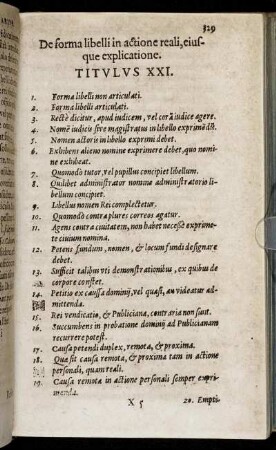 329
De forma libelli in actione reali, eius-
que explicatione.
TITVLVS XXI.
1. Forma libelli non articulati.
2. Forma libelli articulati.
3. Rectè dicitur, apud iudicem, vel corā iudice agere.
4. Nomē iudicis siue magistratus in libello exprimēdū.
5. Nomen actoris in libello exprimi debet.
6. Exhibens alieno nomine exprimere debet, quo nomi-
ne exhibeat.
7. Quomodò tutor, vel pupillus concipiet libellum.
8. Quilibet administrator nomine administratorio li-
bellum concipiet.
9. Libellus nomen Rei complectetur.
10. Quomodò contra plures correos agatur.
11. Agens contra ciuitatem, non habet necesse exprime-
re ciuium nomina.
12. Petens fundum, nomen, & locum fundi designare
debet.
13. Sufficit talibus vti demonstrationibus, ex quibus de
corpore constet.
14. Petitio ex causa dominij, vel quasi, an videatur ad-
mittenda.
15. Rei venditatio, & Publiciana, contraria non sunt.
16. Succumbens in probatione dominij ad Publicianam
recurrere potest.
17. Causa petendi duplex, remota, & proxima.
18. Quæ sit causa remota, & proxima tam in actione
personali, quam reali.
19. Causa remota in actione personali semper expri-
menda.
X 5 20. Empti-